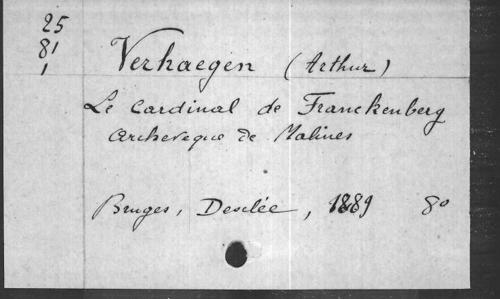 25
81
1
Verhaegen (Arthur)
Le Cardinal de Franckenberg
Archeveque de Malines
Bruges, Desclée, 1889 8o